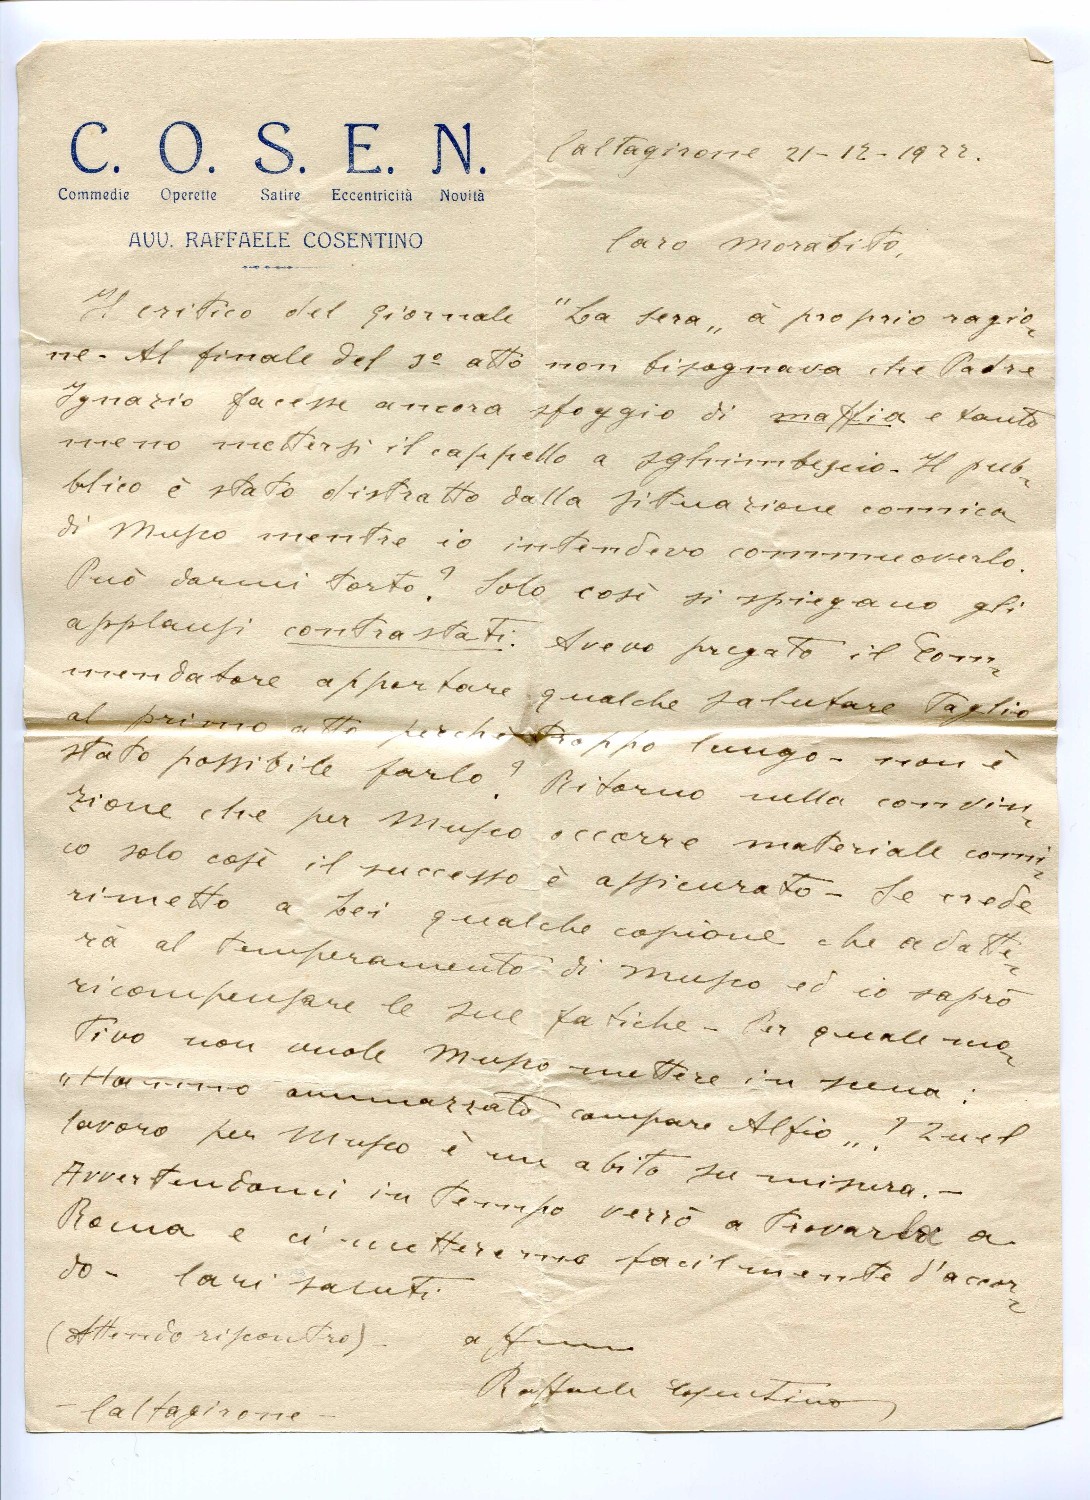 C. O. S. E. N.
Commedie Operette Satire Eccentricità Novità
AVV. RAFFAELE COSENTINO
Caltagirone 21-12-1922.
Caro Morabito,
Il critico del giornale "La sera„ à proprio ragio-
ne- Al finale del 3º atto non bisognava che Padre
Ignazio facesse ancora sfoggio di maffia e tanto
meno mettersi il cappello a sghimbescio- Il pub-
blico è stato distratto dalla situazione comica
di Musco mentre io intendevo commuoverlo.
Può darmi torto? Solo così si spiegano gli
applausi contrastati. Avevo pregato il Com-
mendatore apportare qualche salutare taglio
al primo atto perché troppo lungo- non è
stato possibile farlo? Ritorno nella convin-
zione che per Musco occorre materiale comi-
co solo così il successo è assicurato- Se crede
rimetto a Lei qualche copione che adatte-
rà al temperamento di Musco ed io saprò
ricompensare le sue fatiche- Per quale mo-
tivo non vuole Musco mettere in scena:
"Hanno ammazzato compare Alfio„? Quel
lavoro per Musco è un abito su misura.-
Avvertendomi in tempo verrò a trovarLa a
Roma e ci metteremo facilmente d'accor-
do- Cari saluti
(Attendo riscontro)- affmo
Raffaele Cosentino
- Caltagirone -